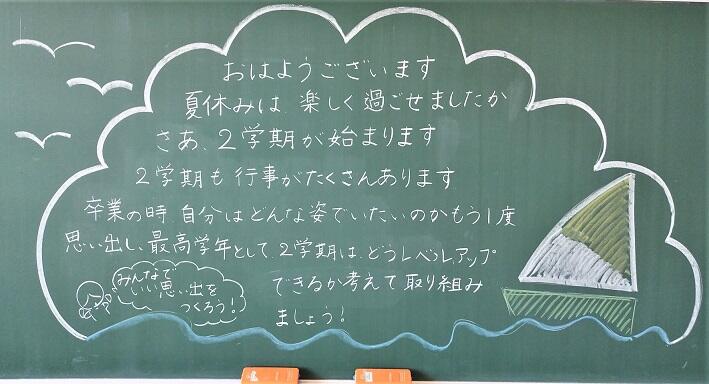 おはようございます
夏休みは 楽しく過ごせましたか
さあ、2学期が始まります
2学期も行事がたくさんあります
卒業の時 自分はどんな姿でいたいのかもう1度
思い出し、最高学年として、2学期は、どうレベルアップ
できるか考えて取り組み
ましょう!
みんなで
いい思い出を
つくろう!